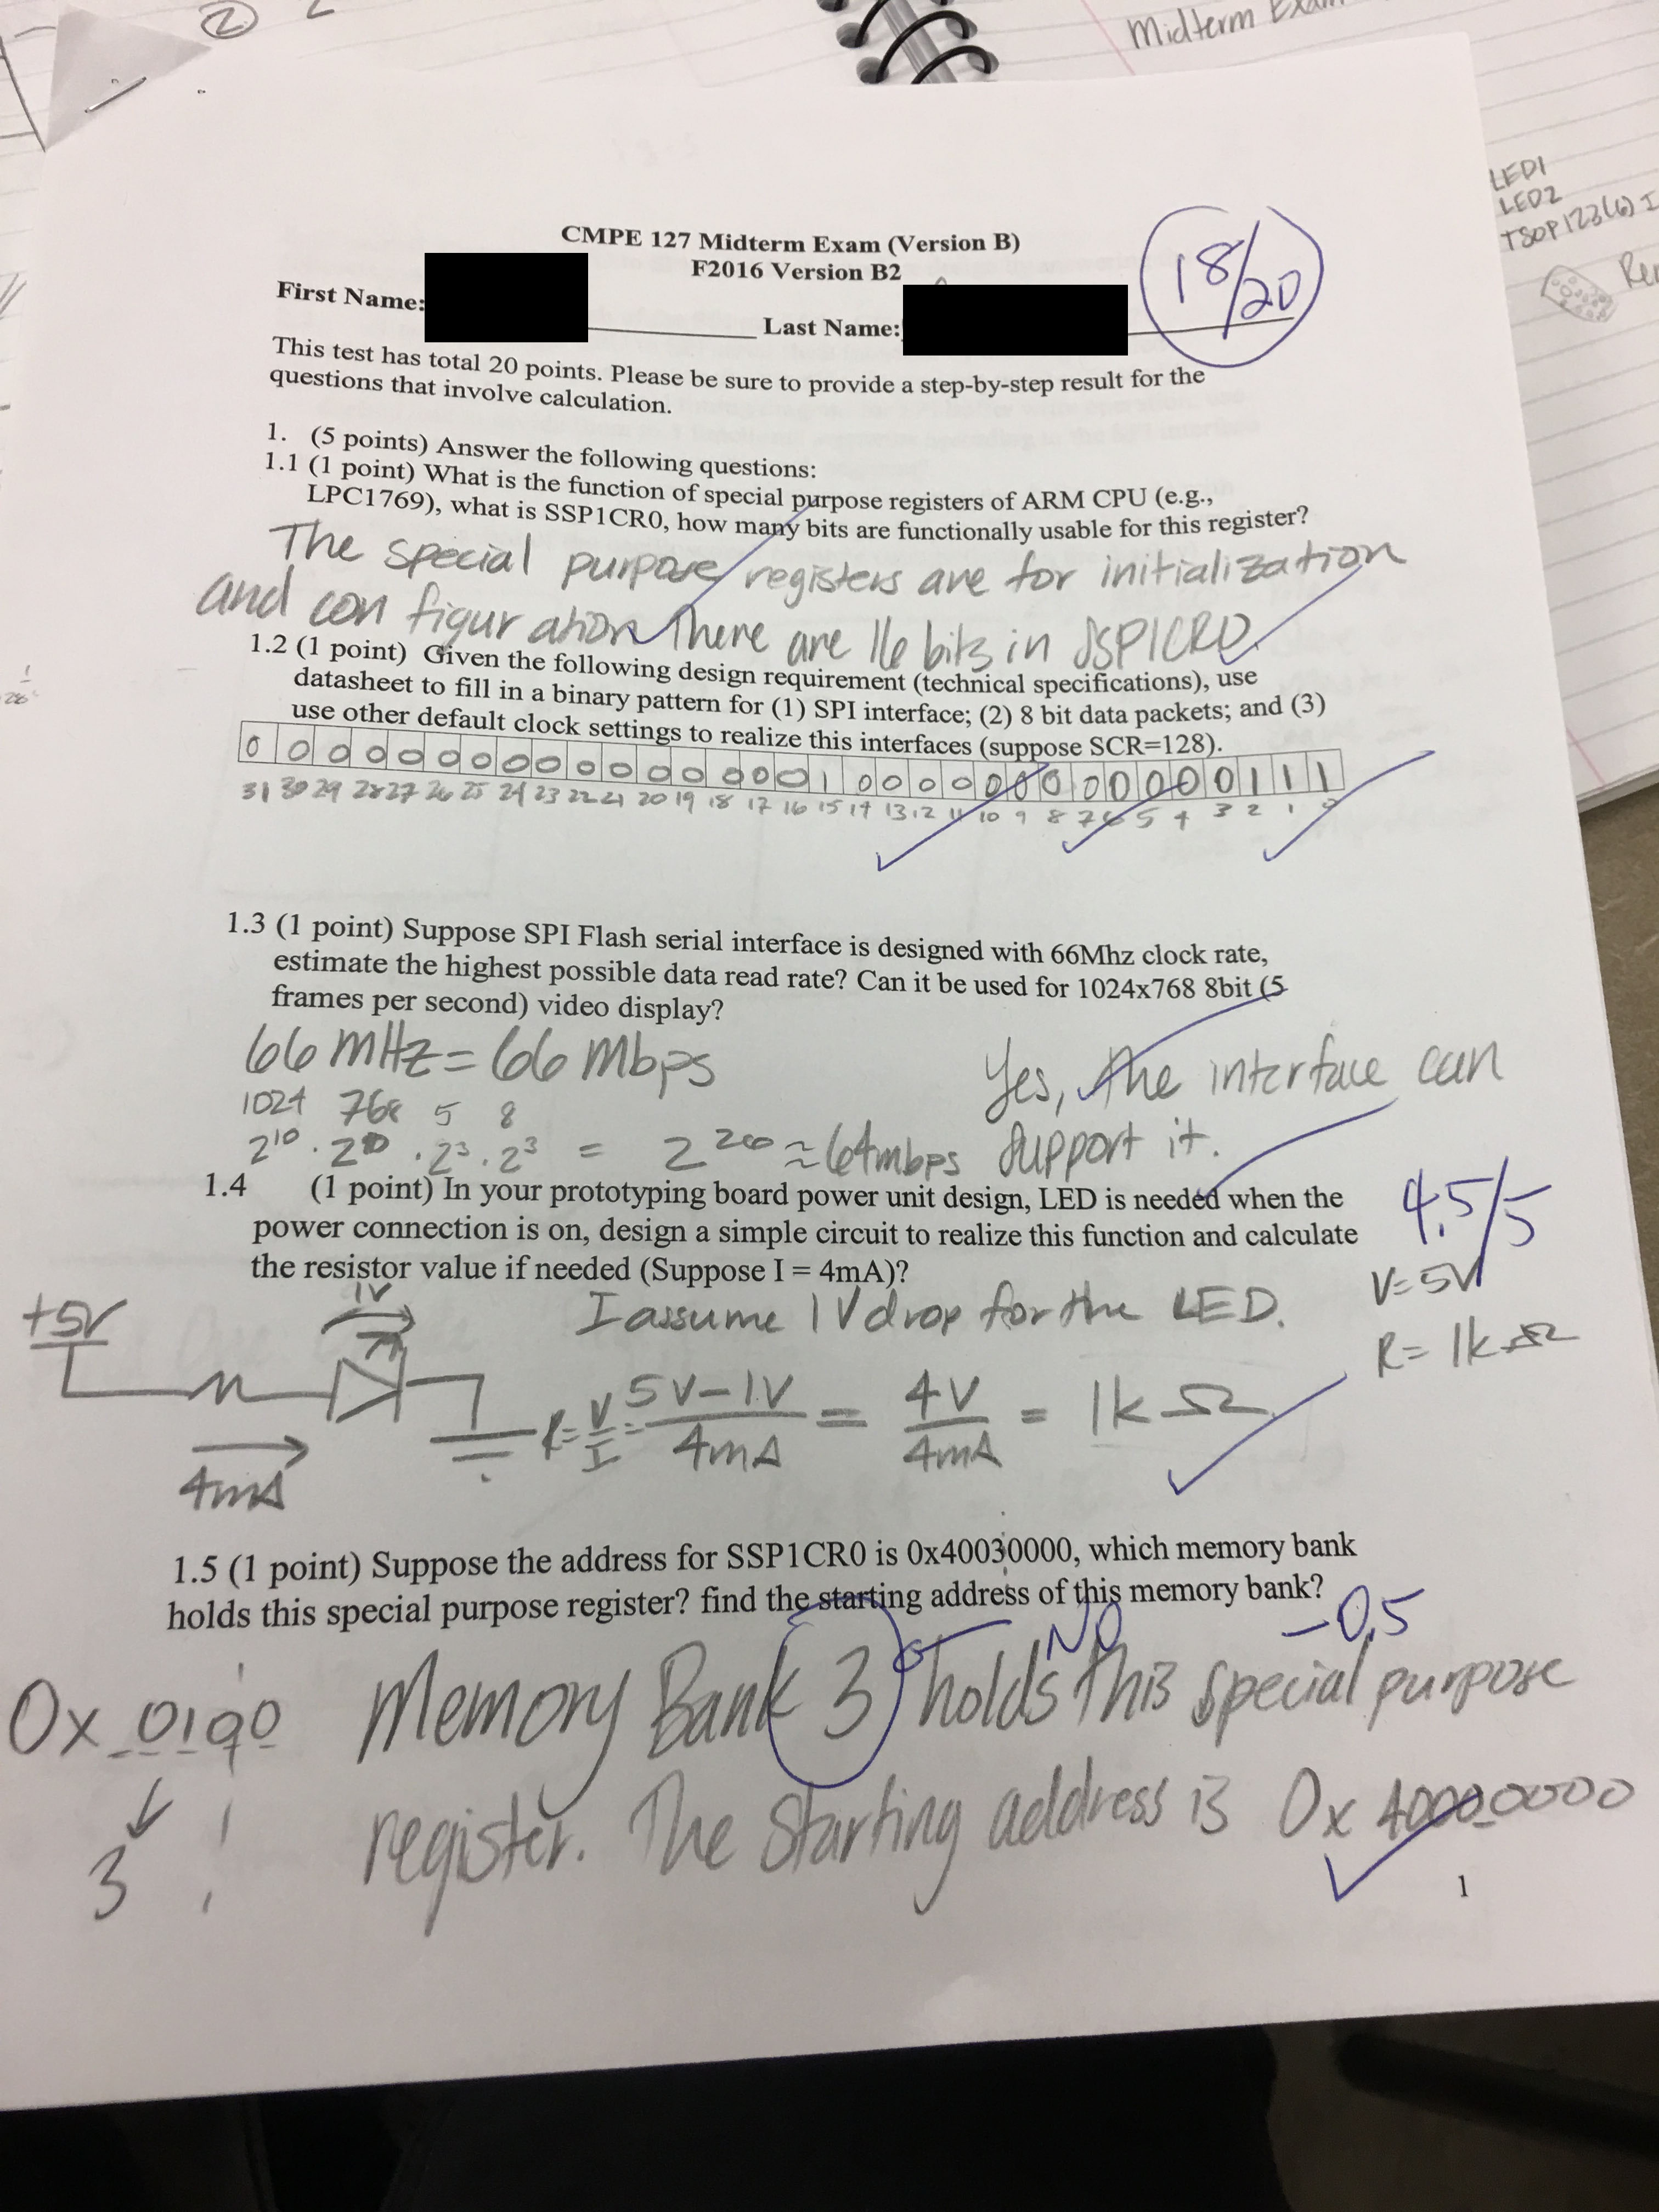 ②
Midterm Exam
LED1
LED2
TSOP123(6) I
CMPE 127 Midterm Exam (Version B)
F2016 Version B2
18/20
First Name:
Last Name:
This test has total 20 points. Please be sure to provide a step-by-step result for the
questions that involve calculation.
1. (5 points) Answer the following questions:
1.1 (1 point) What is the function of special purpose registers of ARM CPU (e.g.,
LPC1769), what is SSP1CR0, how many bits are functionally usable for this register?
The special purpose registers are for initialization
and configuration. There are 16 bits in SSP1CR0.
1.2 (1 point) Given the following design requirement (technical specifications), use
datasheet to fill in a binary pattern for (1) SPI interface; (2) 8 bit data packets; and (3)
use other default clock settings to realize this interfaces (suppose SCR=128).
0 0 0 0 0 0 0 0 0 0 0 0 0 0 0 0 1 0 0 0 0 0 0 0 0 0 0 0 0 1 1 1
31 30 29 28 27 26 25 24 23 22 21 20 19 18 17 16 15 14 13 12 11 10 9 8 7 6 5 4 3 2 1 0
1.3 (1 point) Suppose SPI Flash serial interface is designed with 66Mhz clock rate,
estimate the highest possible data read rate? Can it be used for 1024x768 8bit (5
frames per second) video display?
66 MHz = 66 Mbps
Yes, the interface can
1024 768 5 8
2^10 · 2^10 · 2^3 · 2^3 = 2^26 ≈ 64mbps support it.
1.4 (1 point) In your prototyping board power unit design, LED is needed when the
power connection is on, design a simple circuit to realize this function and calculate
the resistor value if needed (Suppose I = 4mA)?
4.5/5
V=5V
R= 1kΩ
+5V
1V
I assume 1V drop for the LED.
R= V/I = 5V-1V/4mA = 4V/4mA = 1kΩ.
4mA
1.5 (1 point) Suppose the address for SSP1CR0 is 0x40030000, which memory bank
holds this special purpose register? find the starting address of this memory bank?
NO
-0.5
0x 0100 Memory Bank 3 holds this special purpose
3
register. The starting address is 0x 40000000
1